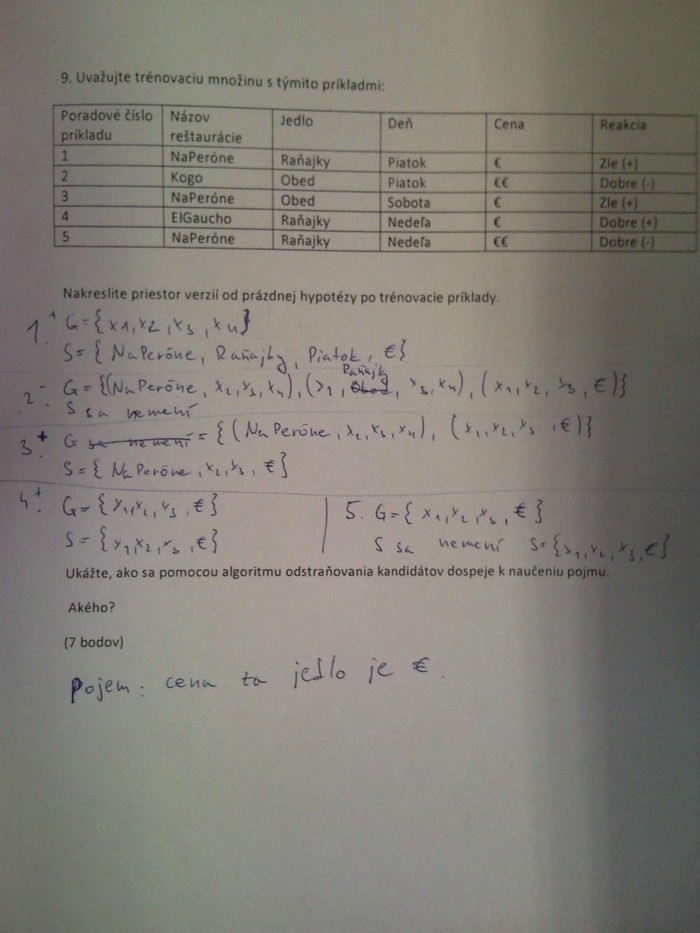 9. Uvažujte trénovaciu množinu s týmito príkladmi:
Poradové číslo príkladu Názov reštaurácie Jedlo Deň Cena Reakcia
1 NaPeróne Raňajky Piatok € Zle (+)
2 Kogo Obed Piatok €€ Dobre (-)
3 NaPeróne Obed Sobota € Zle (+)
4 ElGaucho Raňajky Nedeľa € Dobre (+)
5 NaPeróne Raňajky Nedeľa €€ Dobre (-)
Nakreslite priestor verzií od prázdnej hypotézy po trénovacie príklady.
1.+ G={x1,x2,x3,x4}
S={NaPeróne, Raňajky, Piatok, €}
2.- G={(NaPeróne, x2,x3,x4),(x1, Raňajky, x3,x4),(x1,x2,x3,€)}
S sa nemení
3.+ G sa nemení = {(NaPeróne,x2,x3,x4), (x1,x2,x3,€)}
S={NaPeróne,x2,x3, €}
4.+ G={x1,x2,x3,€}
S={x1,x2,x3,€}
5. G={x1,x2,x3,€}
S sa nemení S={x1,x2,x3,€}
Ukážte, ako sa pomocou algoritmu odstraňovania kandidátov dospeje k naučeniu pojmu.
Akého?
(7 bodov)
Pojem: cena za jedlo je €.